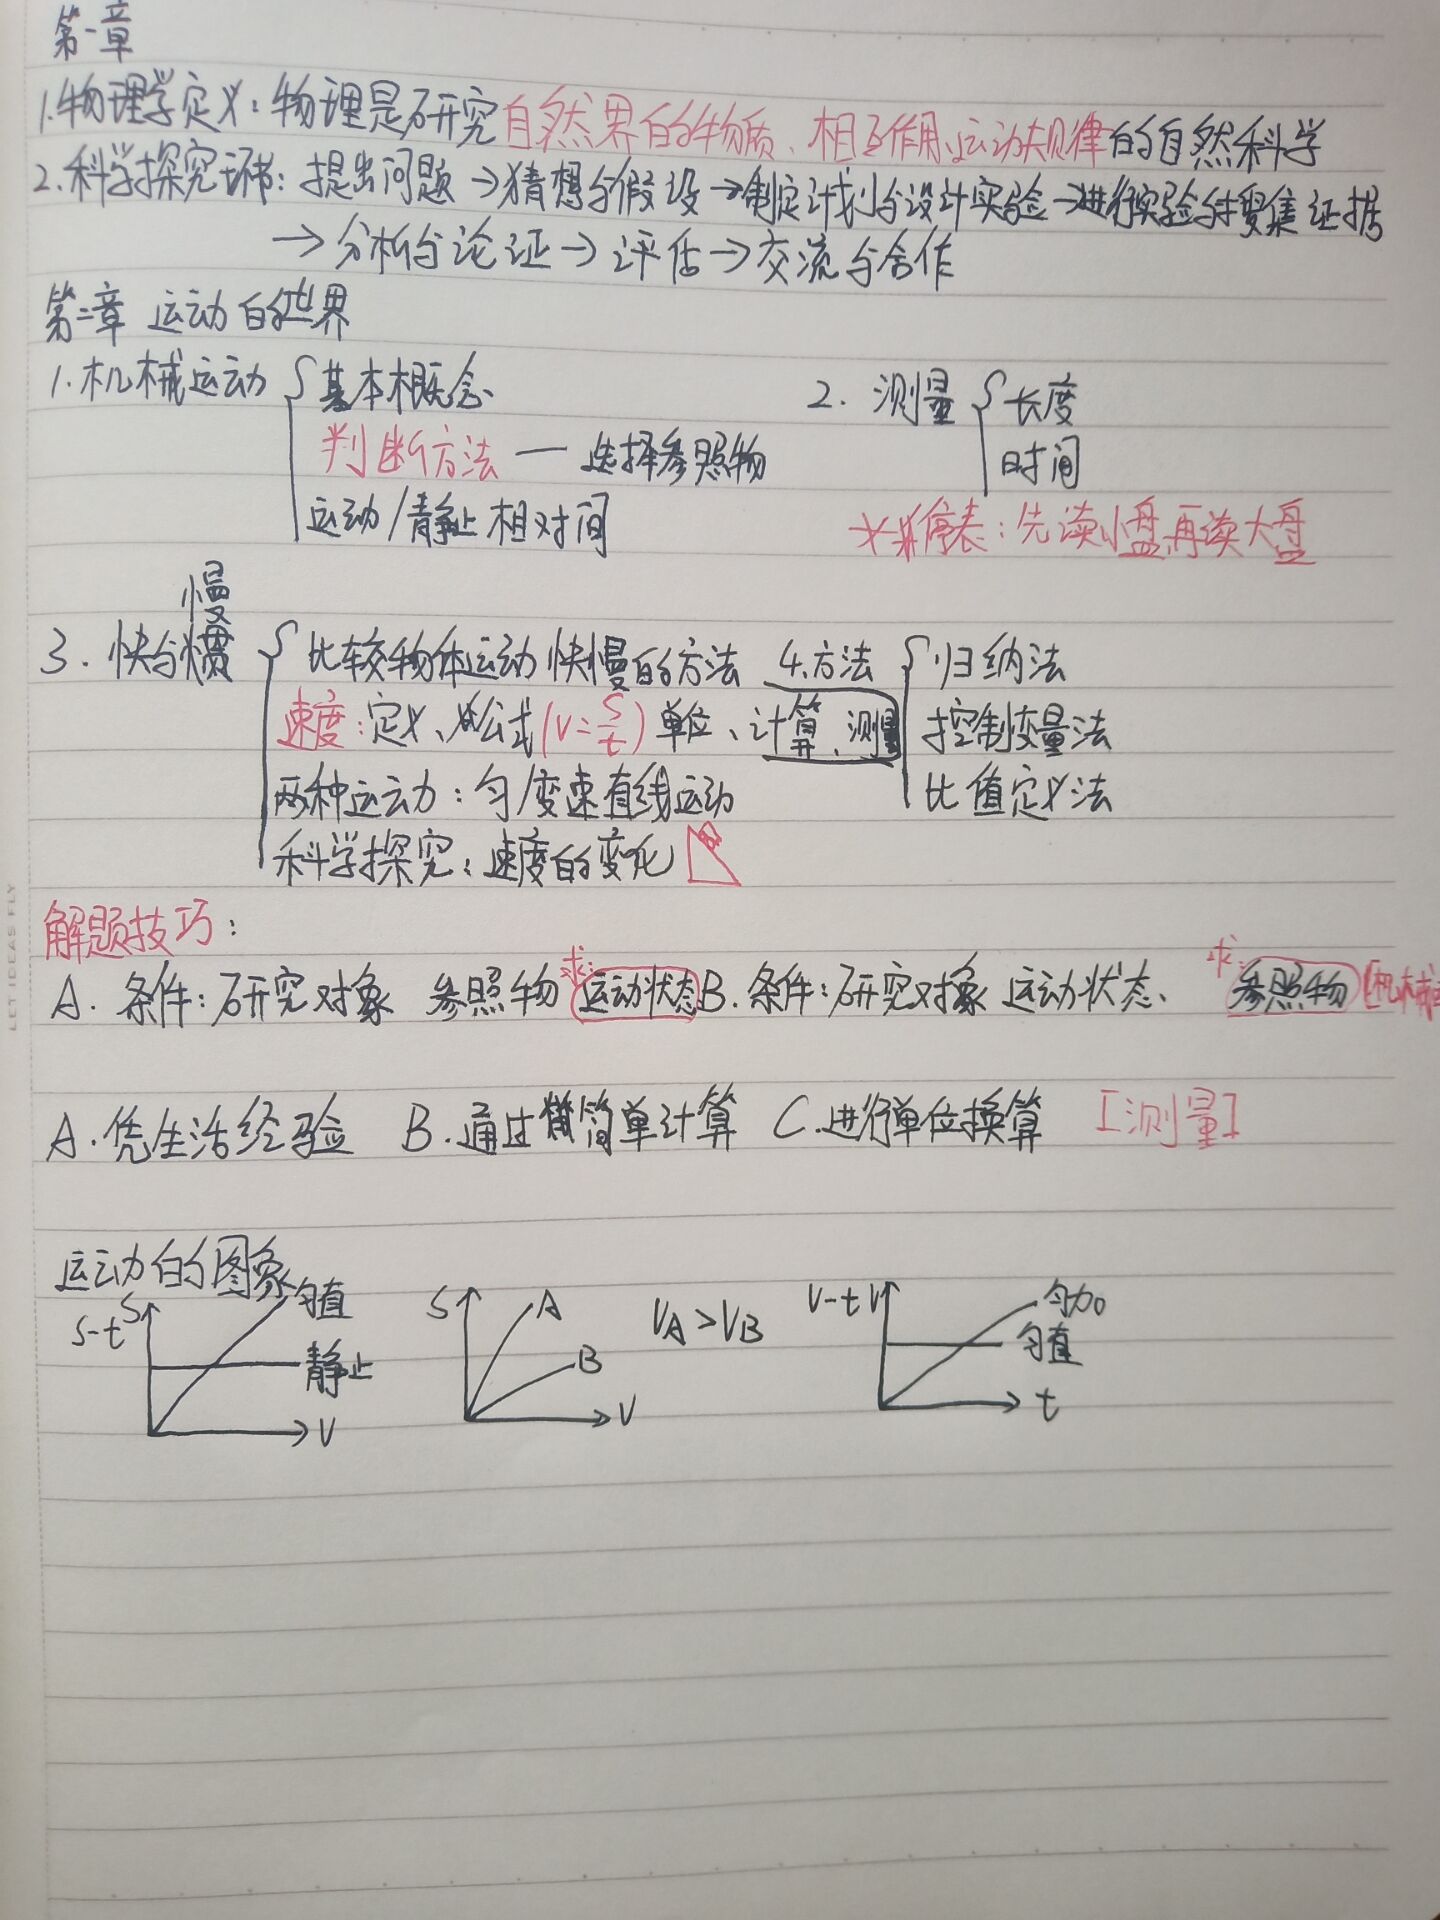 第一章
1.物理学定义：物理是研究自然界的物质、相互作用、运动规律的自然科学
2.科学探究环节：提出问题→猜想与假设→制定计划与设计实验→进行实验与搜集证据
→分析与论证→评估→交流与合作
第二章 运动的世界
1.机械运动 基本概念
判断方法 — 选择参照物
运动/静止相对间
2. 测量 长度
时间
停表：先读小盘再读大盘
慢
3.快与 比较物体运动快慢的方法
速度：定义、公式(v=s/t)单位、计算、测量
两种运动：匀/变速直线运动
科学探究：速度的变化
4.方法 归纳法
控制变量法
比值定义法
解题技巧：
A. 条件：研究对象 参照物 求：运动状态 B. 条件：研究对象 运动状态、 求：参照物 [机械
A.凭生活经验 B.通过简单计算 C.进行单位换算 [测量]
运动的图象
S-t S 匀直
静止
V
S A
B
V
VA>VB
V-t V 匀加
匀直
t
LET IDEAS FLY